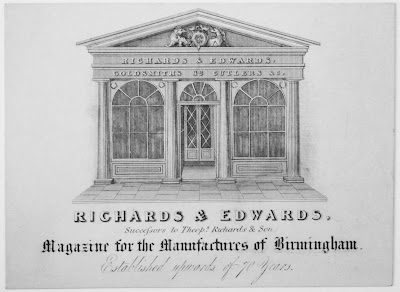 RICHARDS & EDWARDS.
GOLDSMITHS CUTLERS &c.
RICHARDS & EDWARDS,
Successors to Theop.s Richards & Son.
Magazine for the Manufactures of Birmingham.
Established upwards of 70 Years.